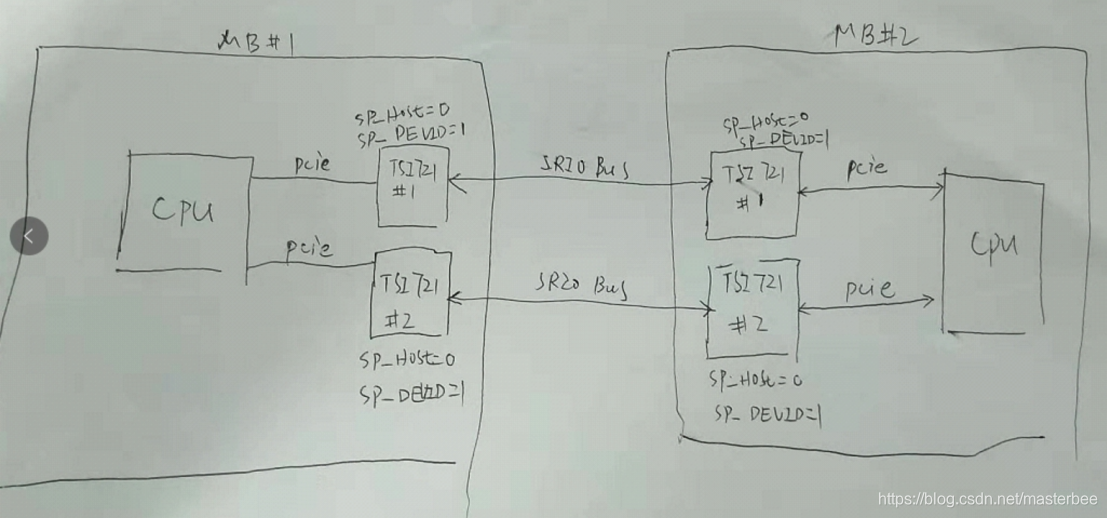 MB#1
SP_HOST=0
SP_DEVID=1
CPU
pcie
TSI721
#1
pcie
TSI721
#2
SP_HOST=0
SP_DEVID=1
SRIO BUS
SRIO BUS
MB#2
SP_HOST=0
SP_DEVID=1
TSI721
#1
pcie
TSI721
#2
pcie
CPU
SP_HOST=0
SP_DEVID=1
https://blog.csdn.net/masterbee